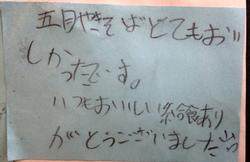 五目やきそばとてもおい
しかったです。
いつもおいしい給食あり
がとうございました